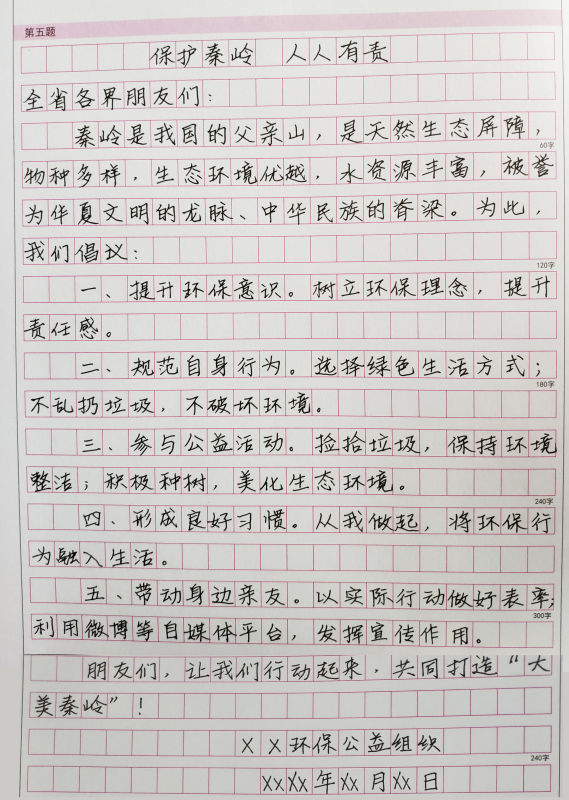 第五题
保护秦岭 人人有责
全省各界朋友们：
秦岭是我国的父亲山，是天然生态屏障，
60字
物种多样，生态环境优越，水资源丰富，被誉
为华夏文明的龙脉、中华民族的脊梁。为此，
我们倡议：
120字
一、提升环保意识。树立环保理念，提升
责任感。
二、规范自身行为。选择绿色生活方式；
180字
不乱扔垃圾，不破坏环境。
三、参与公益活动。捡拾垃圾，保持环境
整洁；积极种树，美化生态环境。
240字
四、形成良好习惯。从我做起，将环保行
为融入生活。
五、带动身边亲友。以实际行动做好表率；
300字
利用微博等自媒体平台，发挥宣传作用。
朋友们，让我们行动起来，共同打造“大
美秦岭”！
XX环保公益组织
240字
XXXX年XX月XX日